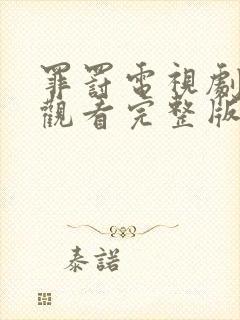 罪罰電視劇
觀看完整版
泰諾